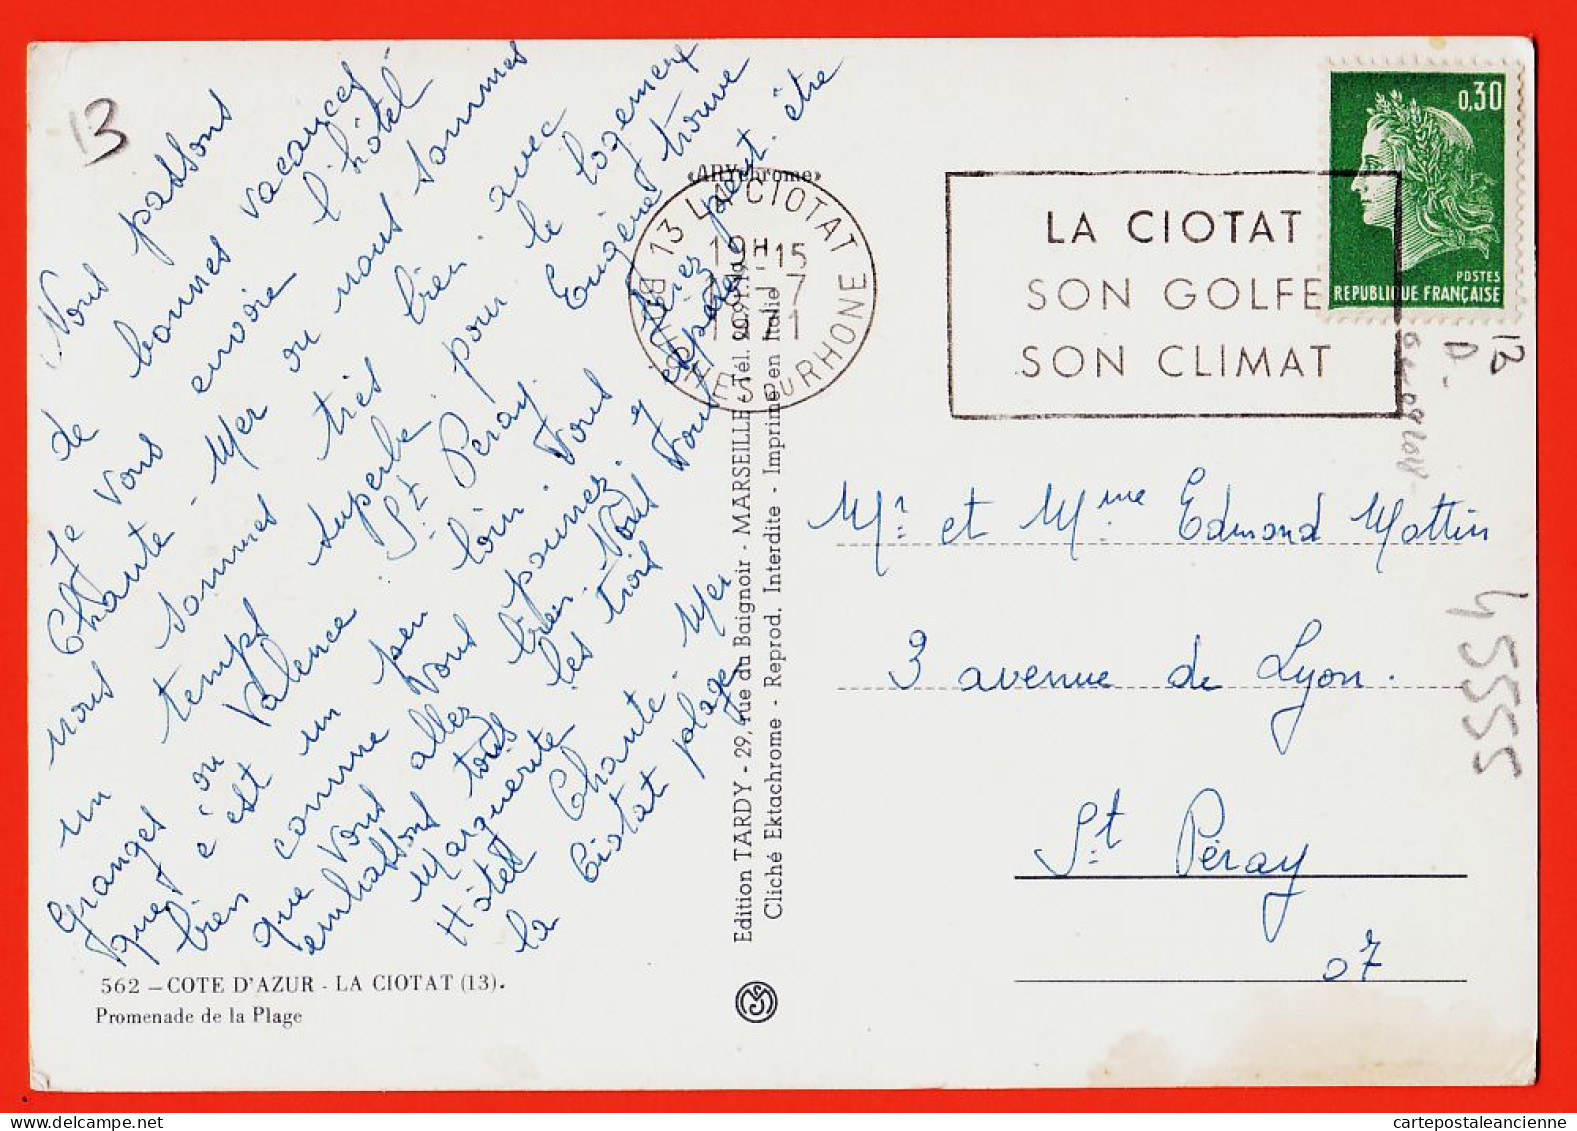 13
Nous passons
de bonnes vacances
Je vous envoie l'hôtel
Chante-Mer où nous sommes
nous sommes très bien avec
un temps superbe pour le logement
Granges ou Valence. St Péray Eugène trouve
que c'est un peu loin. Vous serez peut-être
bien comme vous pourrez y
que vous allez bien. Nous vous
embrassons tous les trois
Marguerite
Hôtel Chante-Mer
la Ciotat plage
562 – COTE D'AZUR - LA CIOTAT (13).
Promenade de la Plage
«ARYchrome»
Edition TARDY - 29, rue du Baignoir - MARSEILLE - Tél. 20.91.19
Cliché Ektachrome - Reprod. Interdite - Imprimé en Italie
13 LA CIOTAT
19H15
7
1971
BCHES DU RHONE
LA CIOTAT
SON GOLFE
SON CLIMAT
0,30
POSTES
REPUBLIQUE FRANÇAISE
13
D-
Mr et Mme Edmond Mottin
3 avenue de Lyon.
St Péray
07
45555
cartepostaleancienne.com